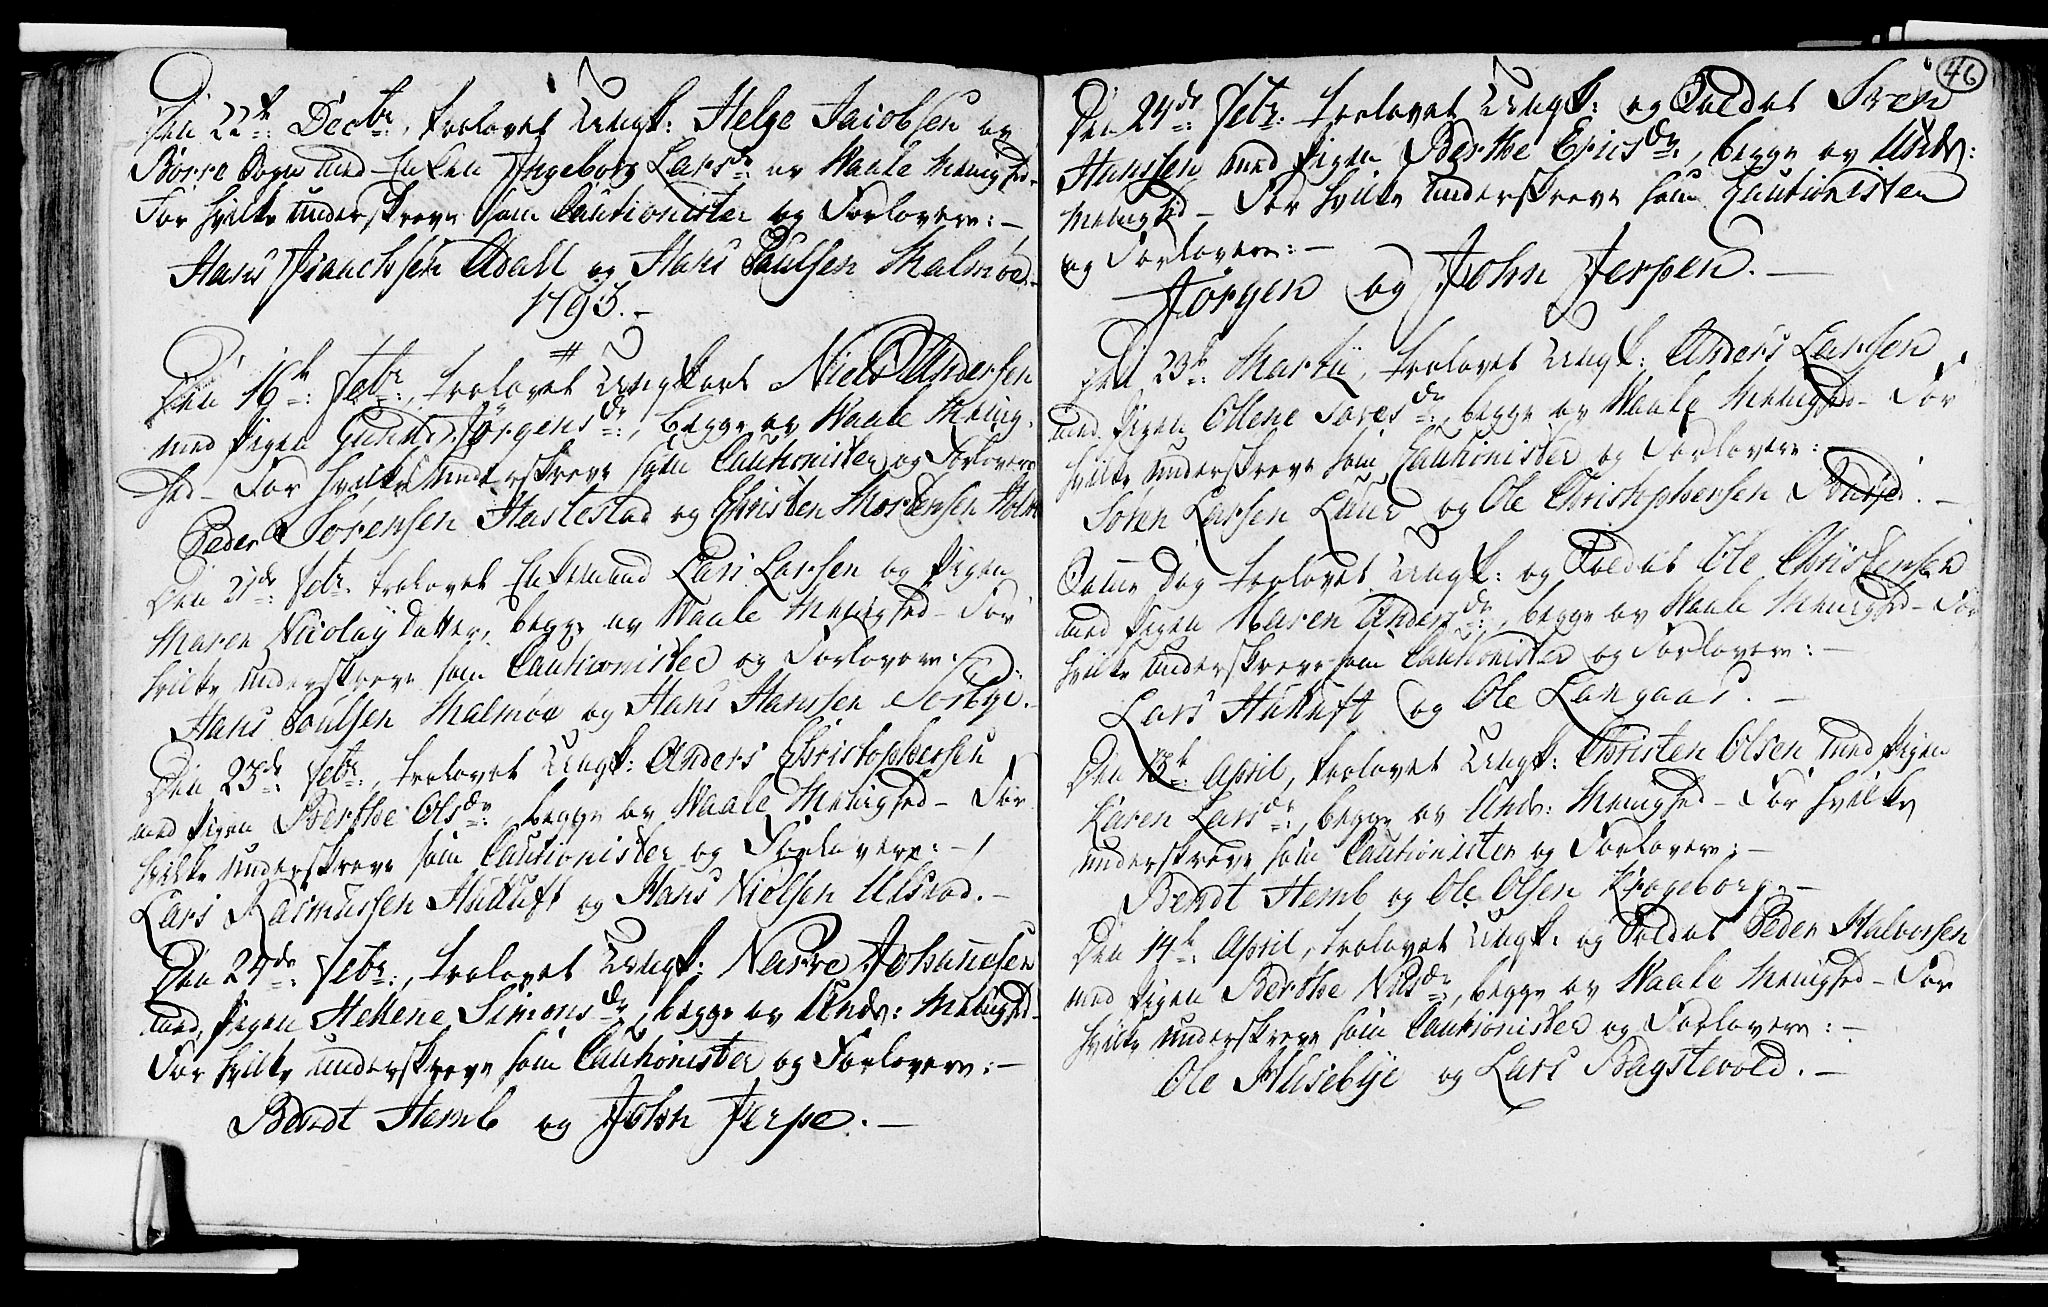 Den 22de: Decbr:, trolovet Ungk: Helge Jacobsen av
Börre Sogn med Enken Ingeborg Larsdr: av Waale Menighed-
For hvilke underskreve som Cautionister og Forlovere:-
Hans Isaachsen Adall og Hans Poulsen Malmöe-
1793.-
Den 16de: Febr:, trolovet Ungkarl Niels Andersen
med Pigen Gunhil Jörgensdr:, begge av Waale Menig-
hed- For hvilke underskreve som Cautionister og Forlovere
Peder Sörensen Hæstestad og Christen Mortensen Holm
Den 21de: Febr: trolovet Enkemand Lars Larsen og Pigen
Maren Nicolay Datter, begge av Waale Menighed- For
hvilke underskreve som Cautionister og Forlovere:-
Hans Poulsen Malmöe og Hans Hanssen Sörbye.-
Den 23de: Febr:, trolovet Ungk: Anders Christophersen
med Pigen Berthe Olsdr:, begge av Waale Menighed- For
hvilke underskreve som Cautionister og Forlovere:-
Lars Rasmussen Hukuft og Hans Nielsen Ullstad.-
Den 24de: Febr:, trolovet Ungk: Narve Johannesen
med Pigen Hellene Simonsdr:, begge av Undr: Menighed-
For hvilke underskreve som Cautionister og Forlovere:-
Berndt Hemb og John Jerpe.-
46
Den 24de: Febr: trolovet Ungk: og Soldat Sven
Hanssen med Pigen Berthe Ericsdr:, begge av Undr:
Menighed- For hvilke underskreve som Cautionister
og Forlovere:-
Jörgen og John Jerpen.-
Den 23de: Martij, trolovet Ungk: Anders Larsen
med Pigen Ollene Soresdr:, begge av Waale Menighed- For
hvilke underskreve som Cautionister og Forlovere:
Soren Larsen Luur og Ole Christophersen.-
Samme Dag trolovet Ungk: og Soldat Ole Christensen
med Pigen Maren Andersdr:, begge av Waale Menighed- For
hvilke underskreve som Cautionister og Forlovere:-
Lars Hukuft og Ole Langaas.-
Den 13de: April, trolovet Ungk: Christen Olsen med Pigen
Karen Larsdr:, begge av Undr: Menighed- For hvilke
underskreve som Cautionister og Forlovere:-
Berndt Hemb og Ole Olsen Krogeborg.-
Den 14de: April, trolovet Ungk: og Soldat Peder Halvorsen
med Pigen Berthe Nilsdr:, begge av Waale Menighed- For
hvilke underskreve som Cautionister og Forlovere:-
Ole Husebye og Lars Bagstevold.-